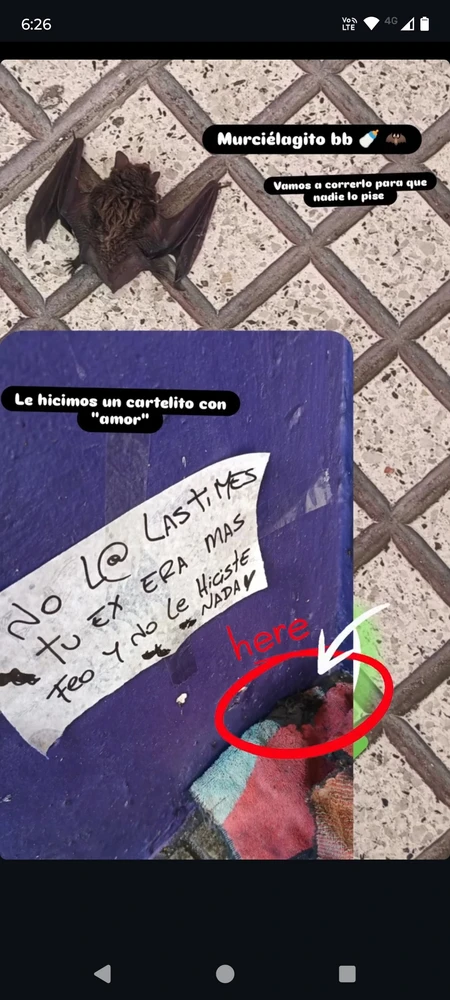 6:26
Vo))
LTE
4G
Murciélagito bb 🍼 🦇
Vamos a correrlo para que
nadie lo pise
Le hicimos un cartelito con
"amor"
NO L@ LASTIMES
TU EX ERA MAS
FEO Y NO LE HICISTE
NADA♥
here